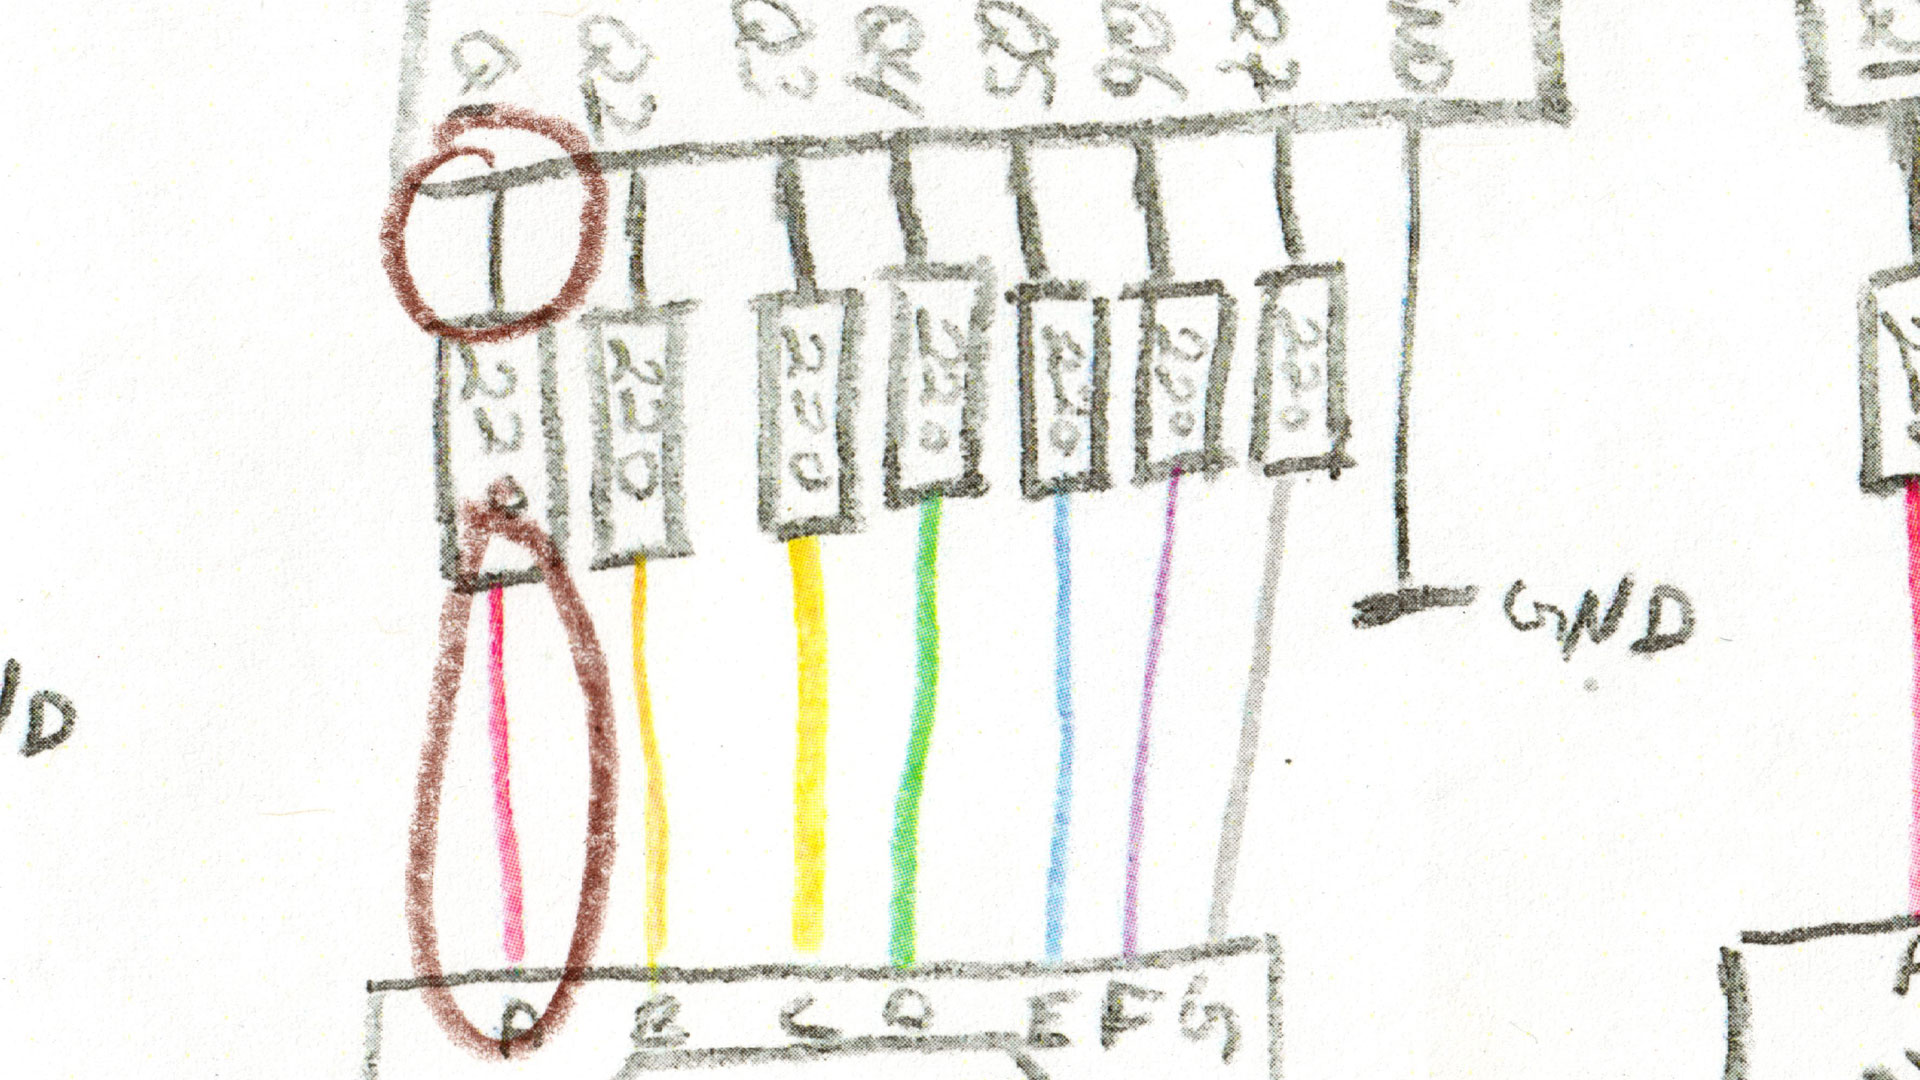 Q1 Q2 Q3 Q4 Q5 Q6 Q7 GND
220 220 220 220 220 220 220
GND
A B C D E F G